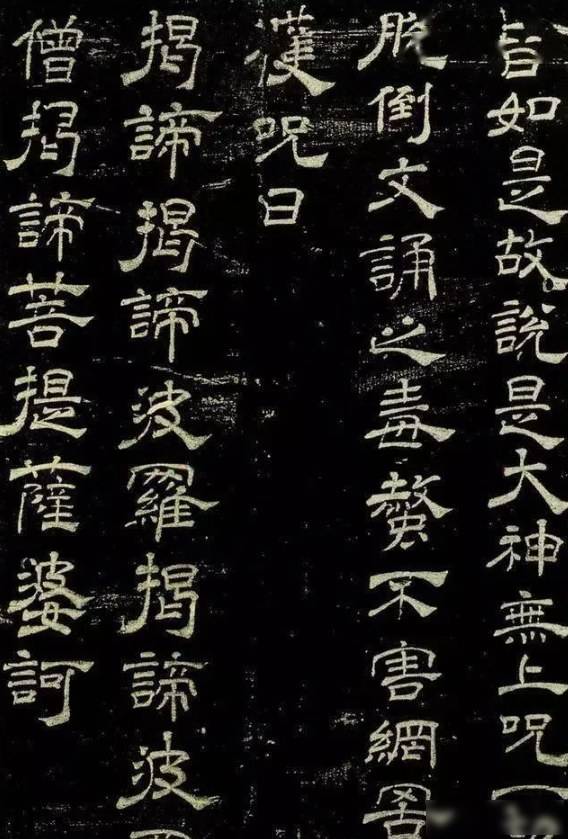 如是故說是大神無上呪
脫倒文誦之毒螫不害網罟
獲呪曰
揭諦揭諦波羅揭諦波
僧揭諦菩提薩婆訶